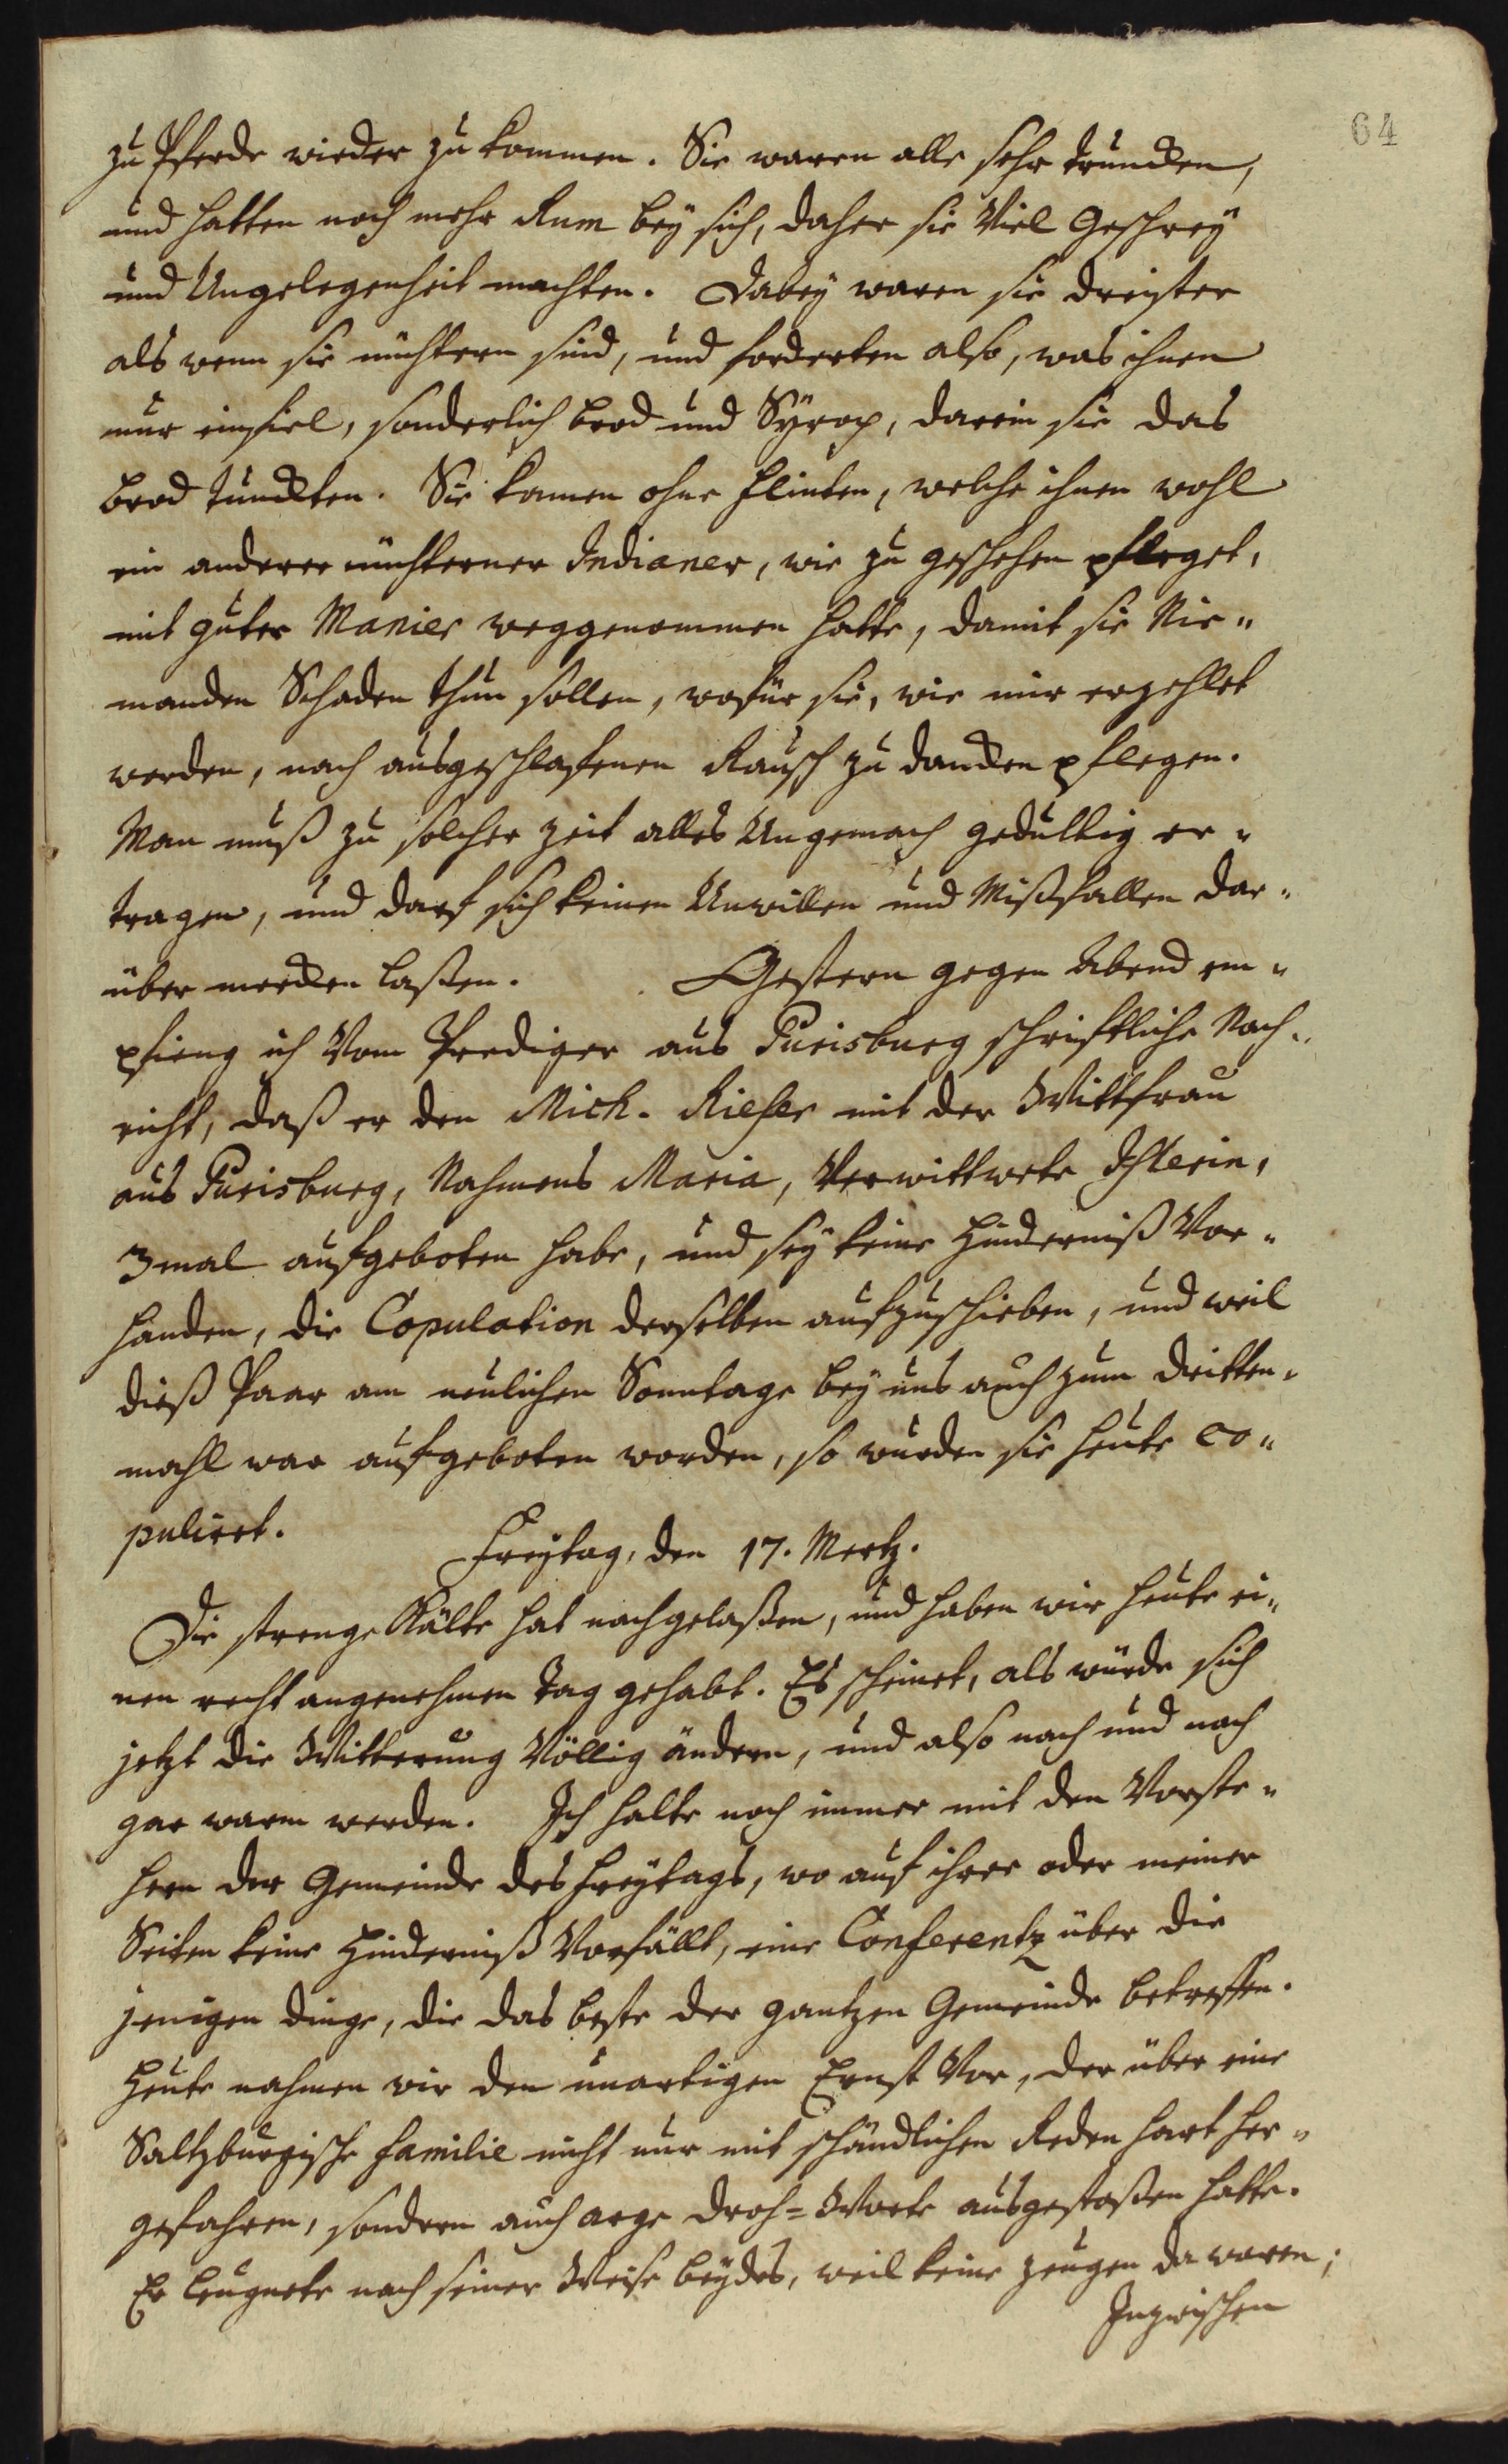 64
zu Pferde wieder zu kommen. Sie waren alle sehr truncken,
und hatten noch mehr Rum bey sich, daher sie viel Geschrey
und Ungelegenheit machten. Dabey waren sie dreister
als wenn sie nüchtern sind, und forderten also, was ihnen
nur einfiel, sonderlich Brod und Syrop, darein sie das
Brod tunckten. Sie kamen ohne Flinten, welche ihnen wohl
ein anderer nüchterner Indianer, wie zu geschehen pfleget,
mit guter Manier weggenommen hatte, damit sie Nie-
manden Schaden thun sollen, wofür sie, wie mir erzehlet
worden, nach ausgeschlafenen Rausch zu dancken pflegen.
Man muß zu solcher Zeit alles Ungemach gedultig er-
tragen, und darf sich keinen Unwillen und Mißfallen dar-
über mercken laßen. Gestern gegen Abend em-
pfieng ich vom Prediger aus Purisburg schriftliche Nach-
richt, daß er den Mich. Rieser mit der Wittfrau
aus Purisburg, Nahmens Maria, verwittwete Ihlerin,
3mal aufgeboten habe, und sey keine Hinderniß vor-
handen, die Copulation derselben aufzuschieben, und weil
dieß Paar am neulichen Sonntage bey uns auch zum dritten-
mahl war aufgeboten worden, so wurden sie heute co-
puliret.
Freytag, den 17. Mertz.
Die strenge Kälte hat nachgelaßen, und haben wir heute ei-
nen recht angenehmen Tag gehabt. Es scheinet, als würde sich
jetzt die Witterung völlig ändern, und also nach und nach
gar warm werden. Ich halte noch immer mit den Vorste-
hern der Gemeinde des Freytags, wo auf ihrer oder meiner
Seiten keine Hinderniß vorfällt, eine Conferentz über die
jenigen Dinge, die das beste der gantzen Gemeinde betreffen.
Heute nahmen wir den unartigen Ernst vor, der über eine
Saltzburgische Familie nicht nur mit schändlichen Reden hart her-
gefahren, sondern auch arge Droh-Worte ausgestoßen hatte.
Er leugnete nach seiner Weise beydes, weil keine Zeugen da waren;
Inzwischen